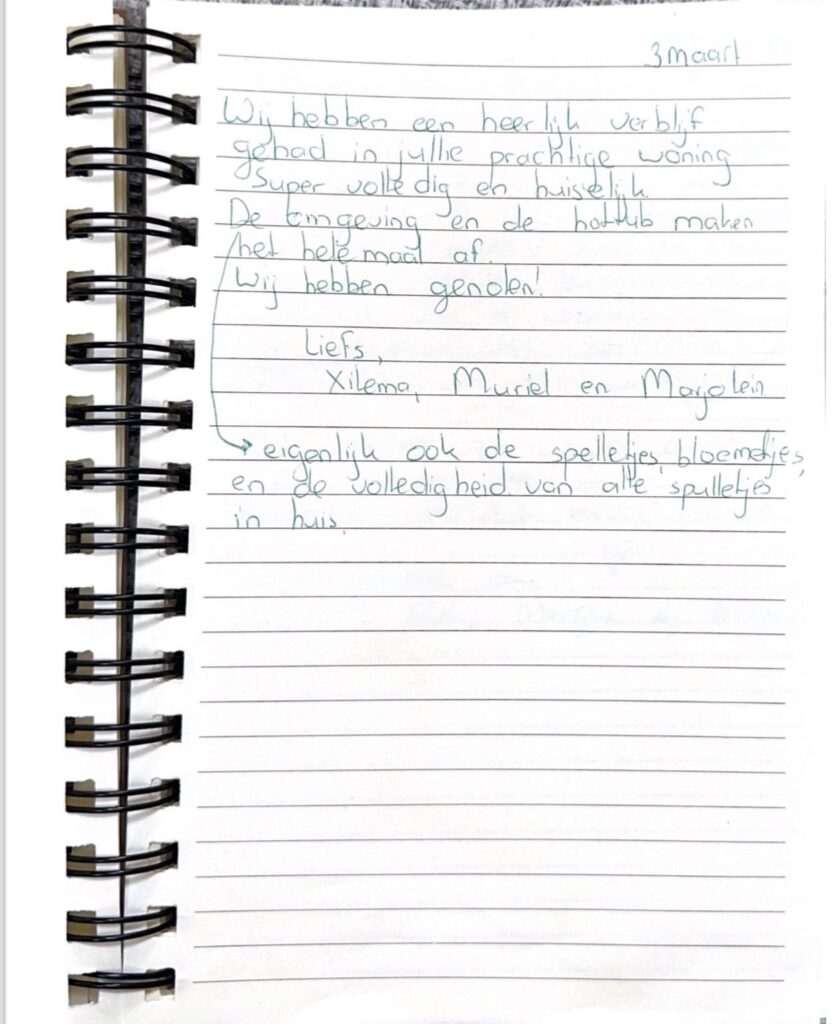 3 maart
Wij hebben een heerlijk verblijf
gehad in jullie prachtige woning
Super volledig en huiselijk.
De omgeving en de hottub maken
het helemaal af.
Wij hebben genoten!
Liefs,
Xilema, Muriel en Marjolein
→ eigenlijk ook de spelletjes, bloemetjes,
en de volledigheid van alle spulletjes
in huis.